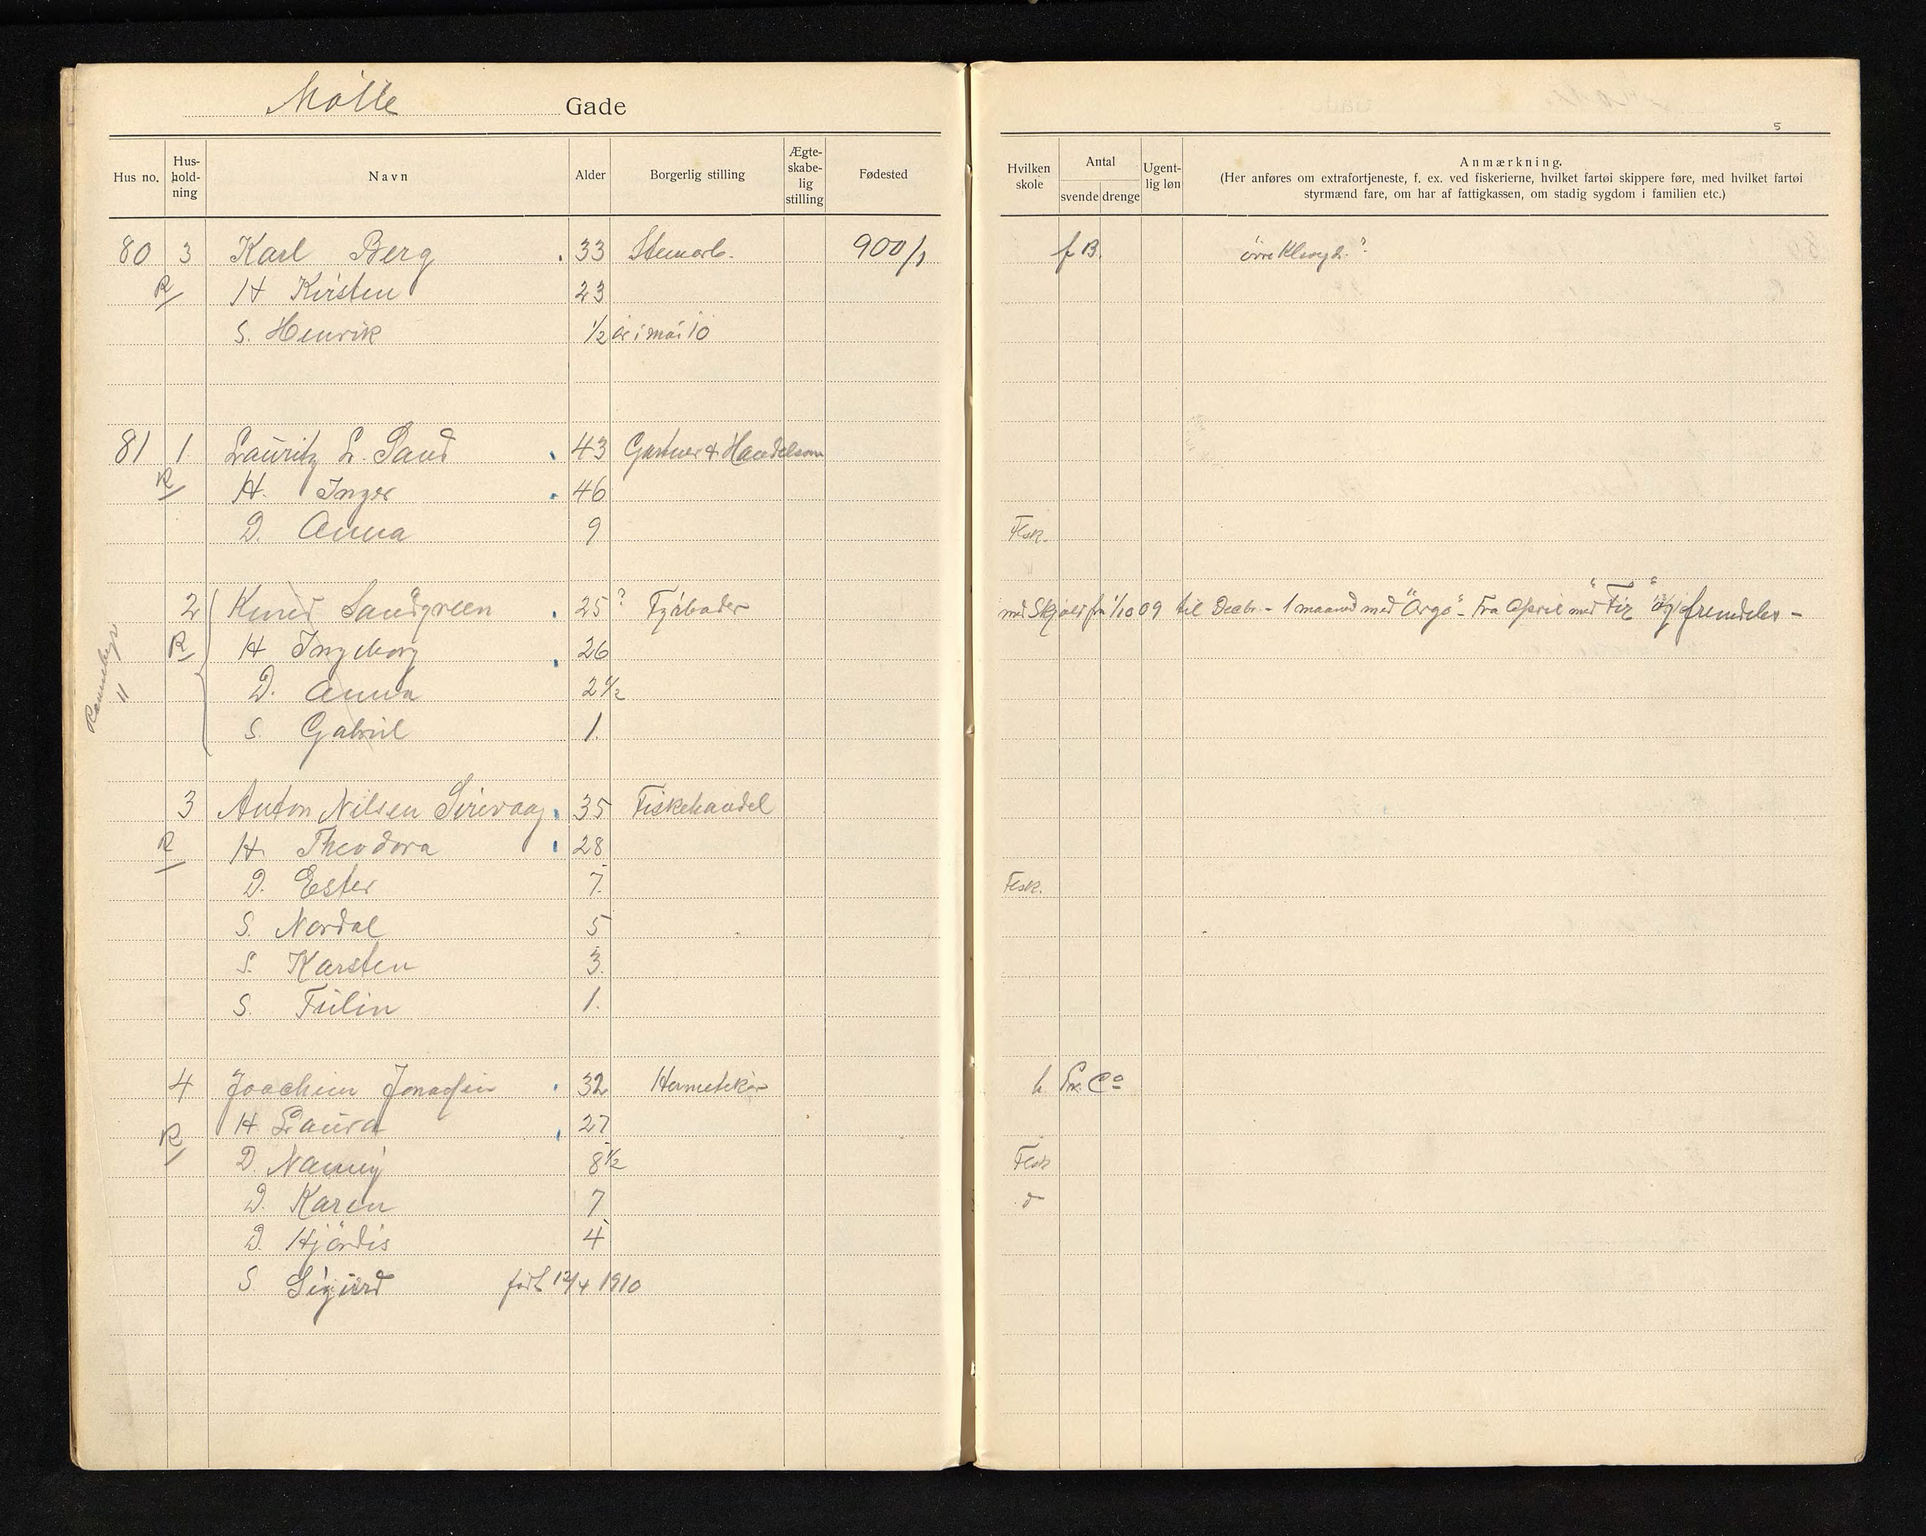 Mølle Gade
5
Hus no. Hus-hold-ning Navn Alder Borgerlig stilling Ægte-skabe-lig stilling Fødested Hvilken skole Antal svende drenge Ugent-lig løn Anmærkning.
(Her anføres om extrafortjeneste, f. ex. ved fiskerierne, hvilket fartøi skippere føre, med hvilket fartøi
styrmænd fare, om har af fattigkassen, om stadig sygdom i familien etc.)
80 3 Karl Berg 33 Stenarb. 900/1 f B.
R H Kirsten 23
S. Henrik 1/2 år i mai 10
81 1. Lauritz L. Sand 43 Gartner & Handelsm
R H. Inger 46
D. Anna 9 Flsk.
2 Knud Sandgreen 25 ? Fyrböder med Skjold fra 1/10 09 til Decbr. - 1 maaned med "Argo" - Fra April med "Fir"
R H Ingeborg 26
D. Anna 2 1/2
S. Gabriel 1.
11
3 Anton Nilsen Sirevaag 35 Fiskehandel
R H. Theodora 28
D. Ester 7. Flsk.
S. Nordal 5
S. Karsten 3.
S. Tulin 1.
4 Joachim Jonassen 32 Hermetikar h. Co
R H. Laura 27
D. Nanny 8 1/2 Flsk
D. Karen 7 d
D. Hjördis 4
S. Sigurd født 12/4 1910